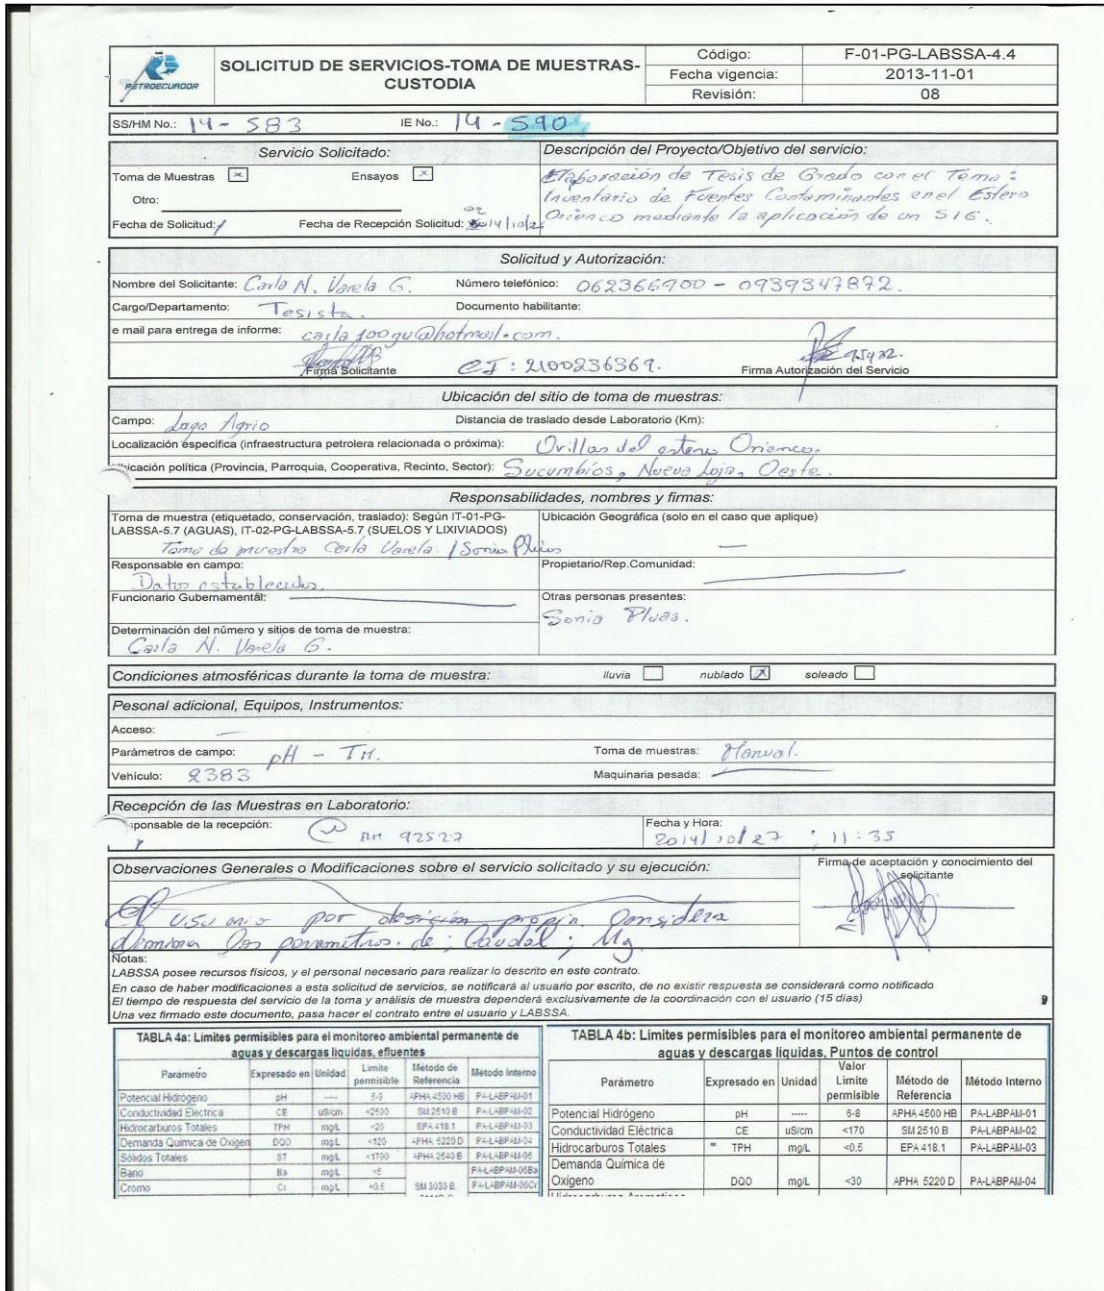 PETROECUADOR
SOLICITUD DE SERVICIOS-TOMA DE MUESTRAS-CUSTODIA
Código: F-01-PG-LABSSA-4.4
Fecha vigencia: 2013-11-01
Revisión: 08
SS/HM No.: 14 - 583 IE No.: 14 - 590
Servicio Solicitado: Descripción del Proyecto/Objetivo del servicio:
Toma de Muestras x Ensayos x
Elaboración de Tesis de Grado con el Tema:
Inventario de Fuentes Contaminantes en el Estero
Orienco mediante la aplicación de un SIG.
Otro:
Fecha de Solicitud: Fecha de Recepción Solicitud:
Solicitud y Autorización:
Nombre del Solicitante: Carla N. Varela G. Número telefónico: 062366900 - 0939347872.
Cargo/Departamento: Tesista. Documento habilitante:
e mail para entrega de informe:
CI: 2100236369.
Firma Solicitante Firma Autorización del Servicio
Ubicación del sitio de toma de muestras:
Campo: Lago Agrio Distancia de traslado desde Laboratorio (Km):
Localización específica (infraestructura petrolera relacionada o próxima): Orillas del estero Orienco.
Ubicación política (Provincia, Parroquia, Cooperativa, Recinto, Sector): Sucumbíos, Nueva Loja, Oeste.
Responsabilidades, nombres y firmas:
Toma de muestra (etiquetado, conservación, traslado): Según IT-01-PG-LABSSA-5.7 (AGUAS), IT-02-PG-LABSSA-5.7 (SUELOS Y LIXIVIADOS)
Ubicación Geográfica (solo en el caso que aplique)
Toma de muestra Carla Varela. / Sonia
Responsable en campo: Propietario/Rep.Comunidad:
Datos establecidos.
Funcionario Gubernamentál: Otras personas presentes:
Sonia
Determinación del número y sitios de toma de muestra:
Carla N. Varela G.
Condiciones atmosféricas durante la toma de muestra: lluvia nublado X soleado
Pesonal adicional, Equipos, Instrumentos:
Acceso:
Parámetros de campo: pH - TM. Toma de muestras: Manual.
Vehículo: 2383 Maquinaria pesada:
Recepción de las Muestras en Laboratorio:
Responsable de la recepción: 92527 Fecha y Hora:
2014/10/27 ; 11:35
Observaciones Generales o Modificaciones sobre el servicio solicitado y su ejecución: Firma de aceptación y conocimiento del solicitante
El usuario por desición propia considera
los parametros de ; Caudal ; Mg.
Notas:
LABSSA posee recursos físicos, y el personal necesario para realizar lo descrito en este contrato.
En caso de haber modificaciones a esta solicitud de servicios, se notificará al usuario por escrito, de no existir respuesta se considerará como notificado
El tiempo de respuesta del servicio de la toma y análisis de muestra dependerá exclusivamente de la coordinación con el usuario (15 días)
Una vez firmado este documento, pasa hacer el contrato entre el usuario y LABSSA.
TABLA 4a: Limites permisibles para el monitoreo ambiental permanente de aguas y descargas liquidas, efluentes
Parámetro Expresado en Unidad Limite permisible Método de Referencia Método Interno
Potencial Hidrógeno pH ---- 5-9 APHA 4500 HB PA-LABPAM-01
Conductividad Eléctrica CE uS/cm <2500 SM 2510 B PA-LABPAM-02
Hidrocarburos Totales TPH mg/L <20 EPA 418.1 PA-LABPAM-03
Demanda Química de Oxigen DQO mg/L <120 APHA 5220 D PA-LABPAM-04
Sólidos Totales ST mg/L <1700 APHA 2540 B PA-LABPAM-05
Bario Ba mg/L <5 PA-LABPAM-06Ba
Cromo Cr mg/L <0.5 SM 3030 B, PA-LABPAM-06Cr
TABLA 4b: Limites permisibles para el monitoreo ambiental permanente de aguas y descargas liquidas, Puntos de control
Parámetro Expresado en Unidad Valor Limite permisible Método de Referencia Método Interno
Potencial Hidrógeno pH ----- 6-8 APHA 4500 HB PA-LABPAM-01
Conductividad Eléctrica CE uS/cm <170 SM 2510 B PA-LABPAM-02
Hidrocarburos Totales * TPH mg/L <0.5 EPA 418.1 PA-LABPAM-03
Demanda Química de Oxígeno DQO mg/L <30 APHA 5220 D PA-LABPAM-04